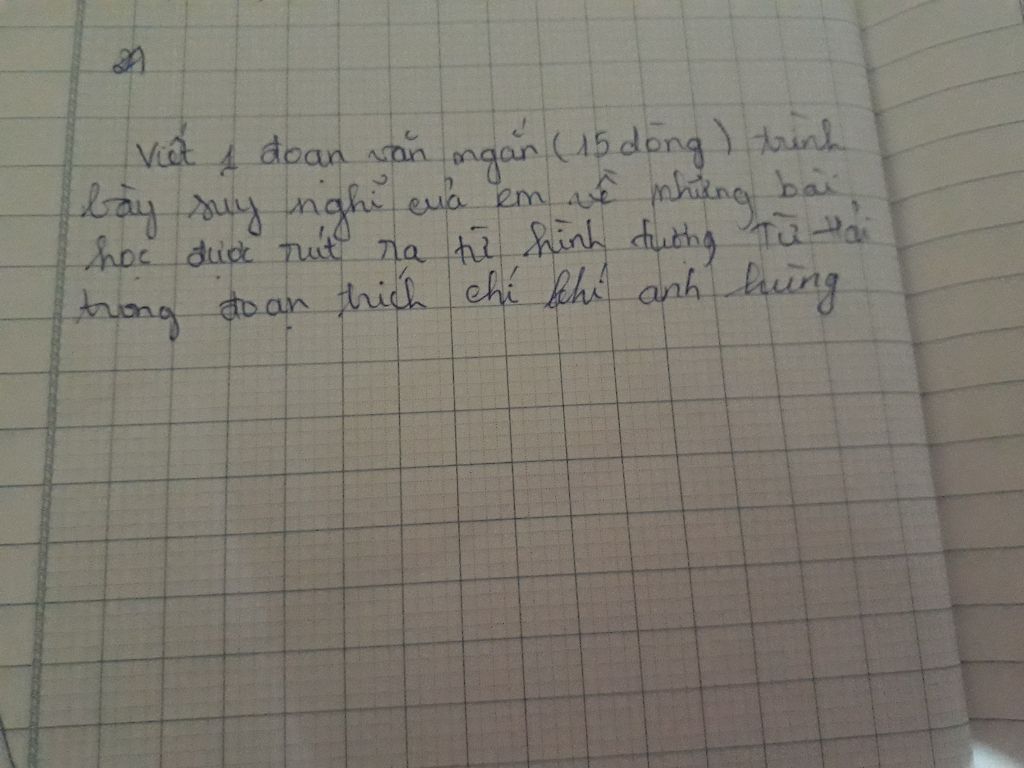 Viết 1 đoạn văn ngắn (15 dòng) trình
bày suy nghĩ của em về những bài
học được rút ra từ hình tượng Từ Hải
trong đoạn trích chí khí anh hùng